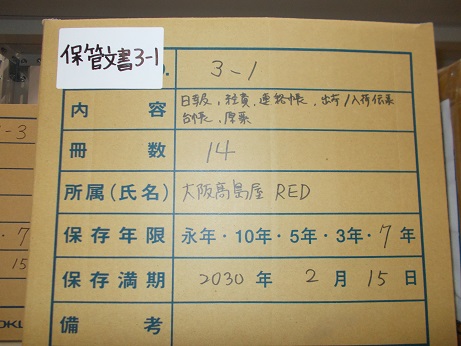 保管文書3-1
O. 3-1
内容 日報, 社費, 連絡帳, 出荷/入荷伝票
台帳, 原票
冊数 14
所属(氏名) 大阪高島屋 RED
保存年限 永年・10年・5年・3年・7年
保存満期 2030年 2月 15日
備考
-3
・7
15
OKU